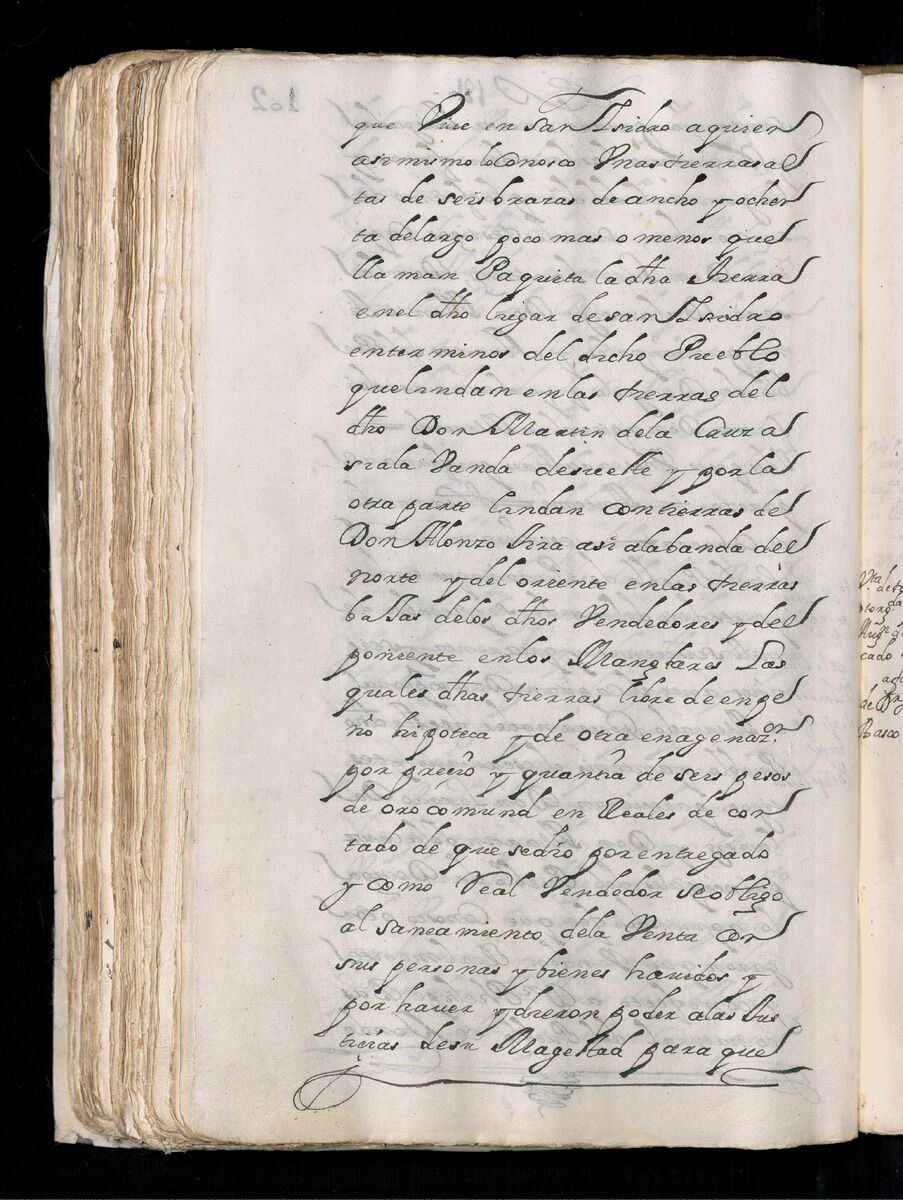 que Viue en san Isidro a quien
asimismo lo Conosco Vnas tierras al
tas de seis brazas de ancho y ochen
ta delargo poco mas o menos que
lla man Paquita la dha tierra
enel dho lugar de san Isidro
enterminos del dicho Pueblo
quelindan enlas tierras del
dho Don Martin dela Cruz a
siala Vanda desuette y por la
otra parte lindan contierras de
Don Alonzo Lira asi alabanda del
norte y del oriente enlas tierras
baJas delos dhos Vendedores y del
poniente enlos Manglares Las
quales dhas tierras libre de enpe
ño hipoteca y de otra enagenazon
por precio y quantia de seis pesos
de oro comund en Reales de con
tado de que sedio por entregado
y como Real Vendedor se obligo
al saneamiento dela Venta con
sus personas y bienes hauidos y
por hauer y dieron poder alas Jus
ticias desu Magestad para que
102
Vta
de
cado
de
Basco